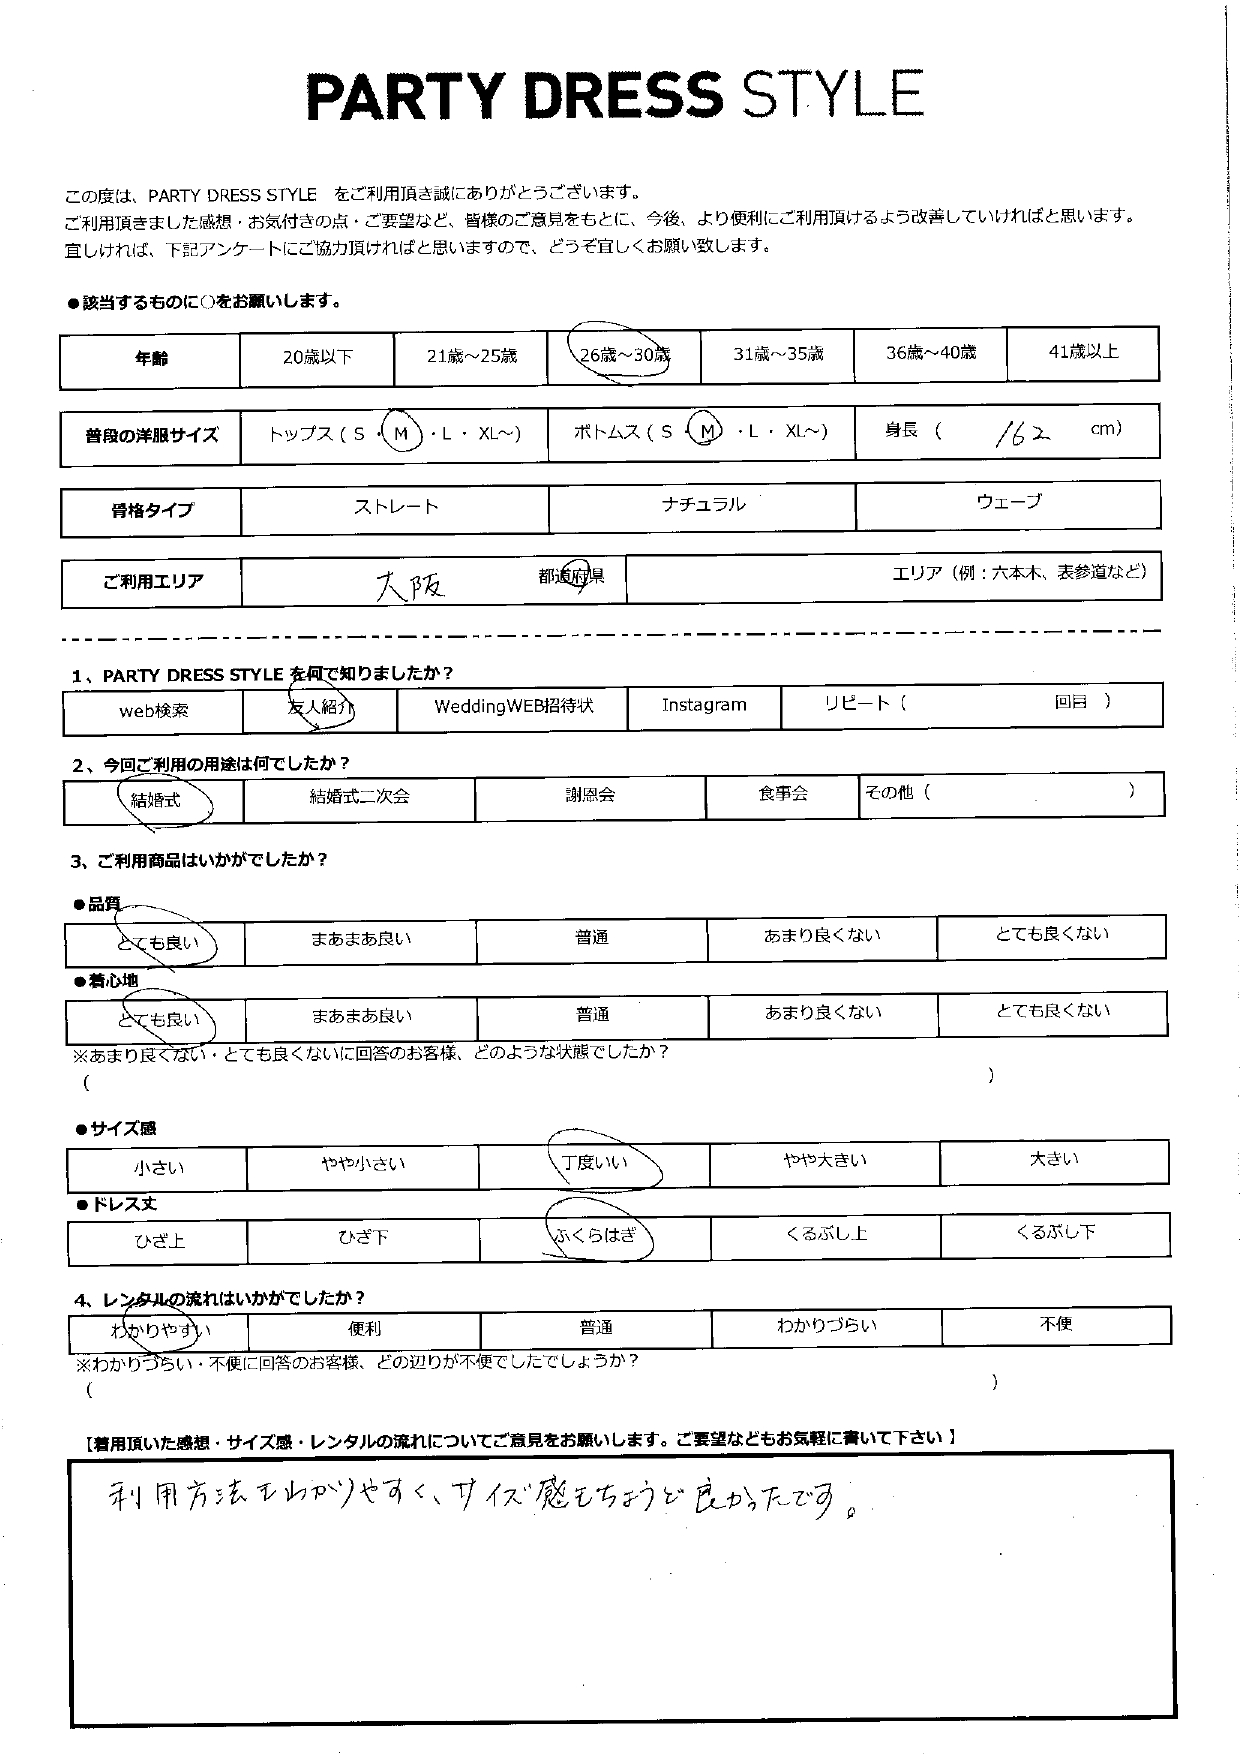 PARTY DRESS STYLE
この度は、PARTY DRESS STYLE をご利用頂き誠にありがとうございます。
ご利用頂きました感想・お気付きの点・ご要望など、皆様のご意見をもとに、今後、より便利にご利用頂けるよう改善していければと思います。
宜しければ、下記アンケートにご協力頂ければと思いますので、どうぞ宜しくお願い致します。
●該当するものに○をお願いします。
年齢 20歳以下 21歳～25歳 26歳～30歳 31歳～35歳 36歳～40歳 41歳以上
普段の洋服サイズ トップス（ S ・ M ・ L ・ XL～） ボトムス（ S ・ M ・ L ・ XL～） 身長 （ 162 cm）
骨格タイプ ストレート ナチュラル ウェーブ
ご利用エリア 大阪 都道府県 エリア（例：六本木、表参道など）
1、PARTY DRESS STYLE を何で知りましたか？
web検索 友人紹介 WeddingWEB招待状 Instagram リピート（ 回目 ）
2、今回ご利用の用途は何でしたか？
結婚式 結婚式二次会 謝恩会 食事会 その他（ ）
3、ご利用商品はいかがでしたか？
●品質
とても良い まあまあ良い 普通 あまり良くない とても良くない
●着心地
とても良い まあまあ良い 普通 あまり良くない とても良くない
※あまり良くない・とても良くないに回答のお客様、どのような状態でしたか？
（ ）
●サイズ感
小さい やや小さい 丁度いい やや大きい 大きい
●ドレス丈
ひざ上 ひざ下 ふくらはぎ くるぶし上 くるぶし下
4、レンタルの流れはいかがでしたか？
わかりやすい 便利 普通 わかりづらい 不便
※わかりづらい・不便に回答のお客様、どの辺りが不便でしたでしょうか？
（ ）
【着用頂いた感想・サイズ感・レンタルの流れについてご意見をお願いします。ご要望などもお気軽に書いて下さい】
利用方法もわかりやすく、サイズ感もちょうど良かったです。